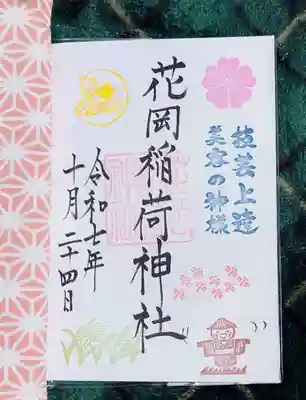 技芸上達
美容の神様
花岡稲荷神社
令和七年
十月二十四日